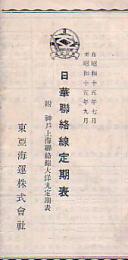 自 昭和十五年七月
至 昭和十五年九月
日華聯絡線定期表
附 神戸上海聯絡線大洋丸定期表
東亞海運株式會社